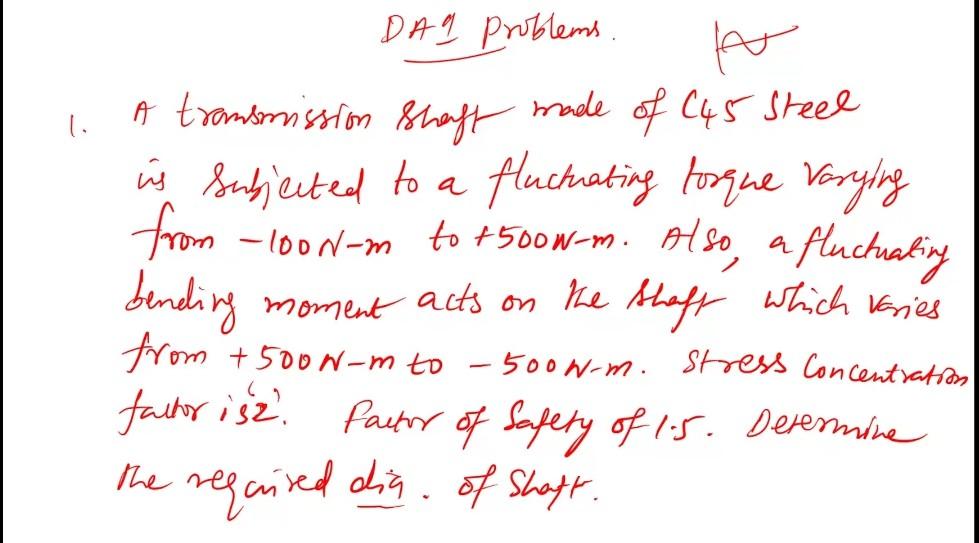 DA1 Problems.
1. A transmission shaft made of C45 Steel
is subjected to a fluctuating torque varying
from -100N-m to +500N-m. Also, a fluctuating
bending moment acts on the shaft which varies
from +500N-m to -500N-m. Stress Concentration
factor is '2'. Factor of Safety of 1.5. Determine
the required dia. of Shaft.